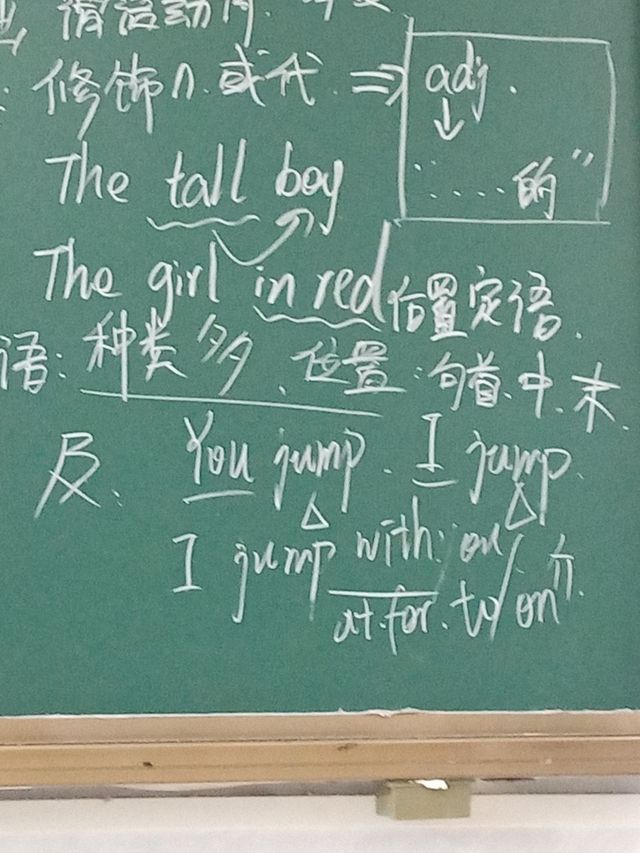 谓语动词.
修饰n.或代. ⇒ adj.
↓
"......的"
The tall boy
The girl in red 后置定语.
语: 种类多、位置:句首.中.末
及: You jump. I jump.
I jump with: on/介.
at.for.to/on